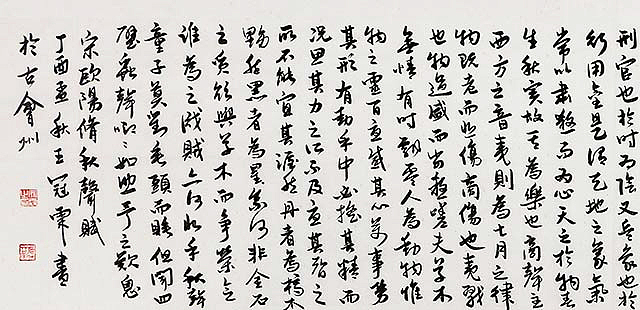 刑官也於时為陰又兵象也於
行用金是谓天地之義氣
常以肅殺而為心天之於物春
生秋實故其為樂也商聲主
西方之音夷則為七月之律
物既老而悲傷商傷也夷戮
也物過盛而當殺嗟夫草木
無情有时飄零人為動物惟
物之靈百憂感其心萬事勞
其形有動乎中必搖其精而
況思其力之所不及憂其智之
所不能宜其渥然丹者為槁木
黟然黑者為星星奈何非金石
之質欲與草木而爭榮念
誰為之戕賊亦何恨乎秋聲
童子莫對垂頭而睡但聞四
壁蟲聲唧唧如助予之歎息
宋歐陽脩秋聲賦
丁酉孟秋王冠霖書
於古會州